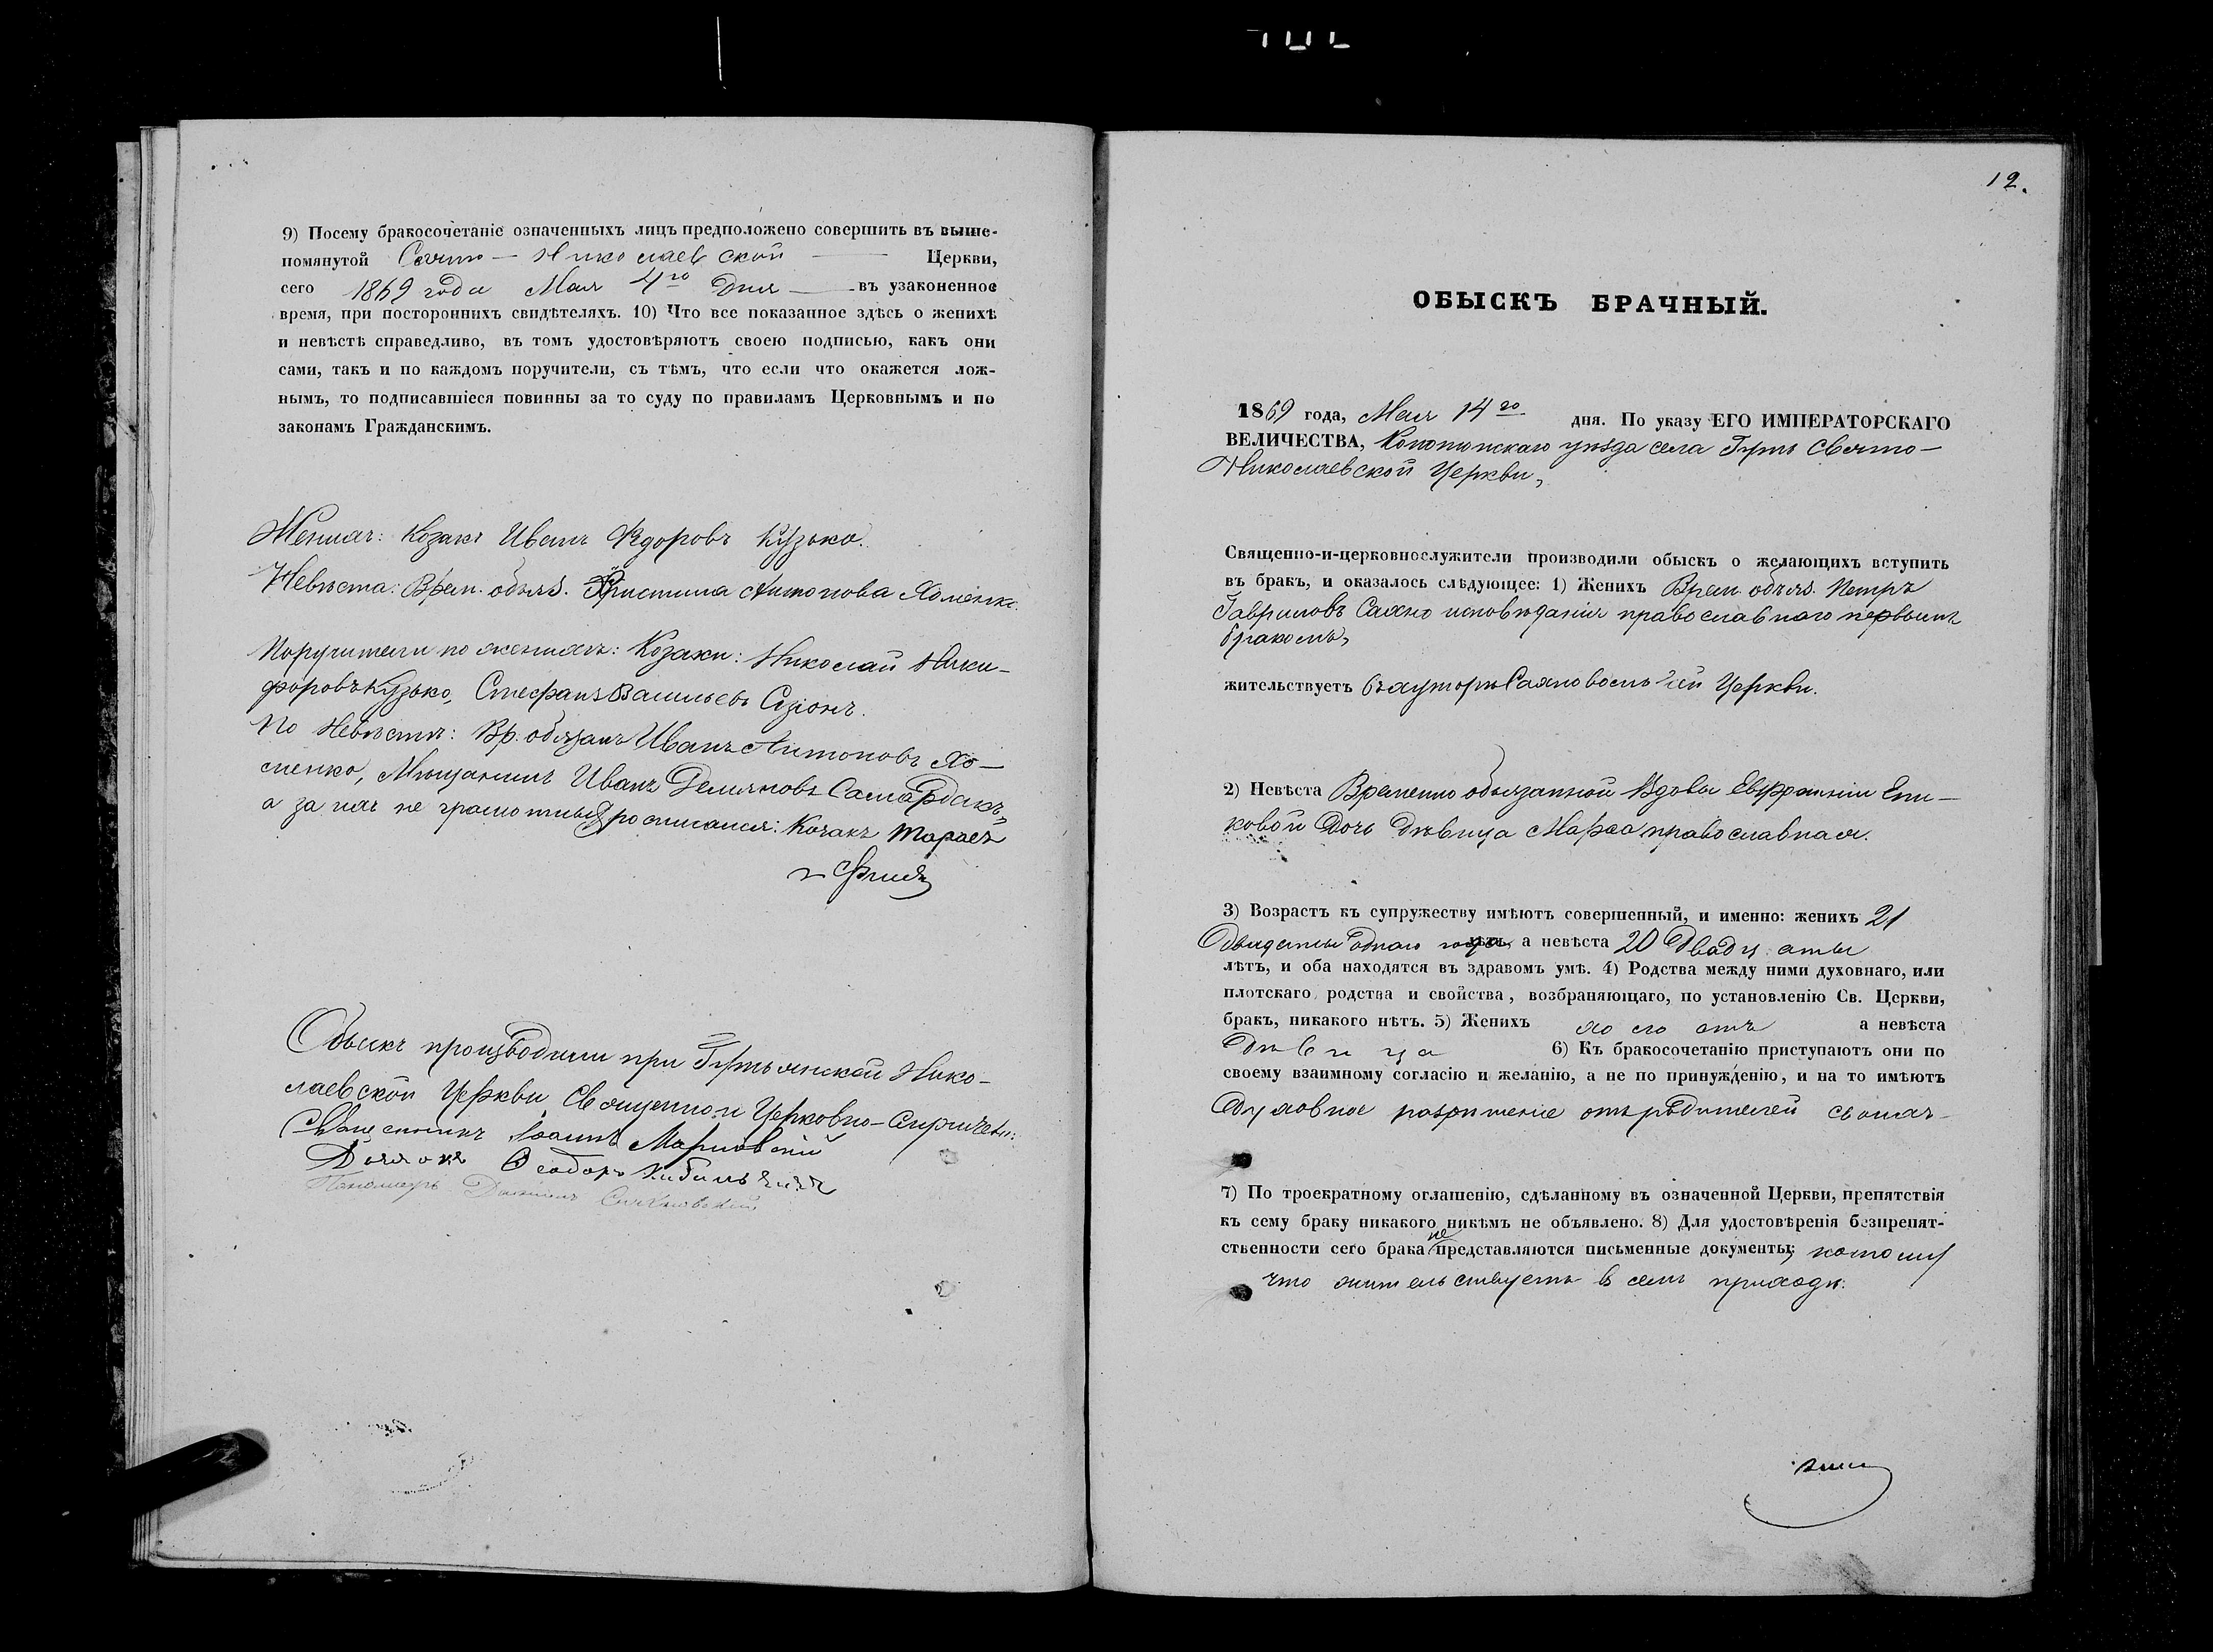 9) Посему бракосочетаніе означенныхъ лицъ предположено совершить въ выше-
помянутой Свято — Николаевской — Церкви,
сего 1869 года Мая 4го дня — въ узаконенное
время, при постороннихъ свидѣтеляхъ. 10) Что все показанное здѣсь о женихѣ
и невѣстѣ справедливо, въ томъ удостовѣряютъ своею подписью, какъ они
сами, такъ и по каждомъ поручители, съ тѣмъ, что если что окажется лож-
нымъ, то подписавшіеся повинны за то суду по правиламъ Церковнымъ и по
законамъ Гражданскимъ.
Женихъ: Козакъ Иванъ Ѳедоровъ Кузько.
Невѣста: Врем. обяз. Христина Антонова Хоменк.
Поручители по женихѣ: Козаки: Николай Ники-
форовъ Кузько, Стефанъ Васильевъ
По Невѣстѣ: Вр. обязан Иванъ Антоновъ Хо-
менко, Мѣщанинъ Иванъ Демяновъ Самардакъ,
а за нихъ не грамотныхъ росписался: Козакъ Тарасъ
Обыскъ производили при Гутянской Нико-
лаевской Церкви Священно и Церковно-Служители:
Священникъ Іоаннъ
Дьячокъ Ѳеодоръ
Пономарь
12.
ОБЫСКЪ БРАЧНЫЙ.
1869 года, Мая 14го дня. По указу ЕГО ИМПЕРАТОРСКАГО
ВЕЛИЧЕСТВА, Конотопскаго уѣзда села Гутъ Свято-
Николаевской Церкви,
Священно-и-церковнослужители производили обыскъ о желающихъ вступить
въ бракъ, и оказалось слѣдующее: 1) Женихъ Врем. обяз. Петръ
Гавриловъ Сахно исповѣданія православнаго первымъ
бракомъ,
жительствуетъ въ хуторѣ Сахновомъ сей Церкви.
2) Невѣста Временно обязанной Вдовы Евфросиніи Епи-
ковой Дочь Дѣвица Марѳа православная.
3) Возрастъ къ супружеству имѣютъ совершенный, и именно: женихъ 21
Двадцаты однаго года, а невѣста 20 Двадцаты
лѣтъ, и оба находятся въ здравомъ умѣ. 4) Родства между ними духовнаго, или
плотскаго родства и свойства, возбраняющаго, по установленію Св. Церкви,
бракъ, никакого нѣтъ. 5) Женихъ холостъ а невѣста
Дѣвица 6) Къ бракосочетанію приступаютъ они по
своему взаимному согласію и желанію, а не по принужденію, и на то имѣютъ
Духовное разрѣшеніе отъ родителей своихъ
7) По троекратному оглашенію, сдѣланному въ означенной Церкви, препятствія
къ сему браку никакого никѣмъ не объявлено. 8) Для удостовѣренія безпрепят-
ственности сего брака не представляются письменные документы; потому
что жительствуетъ в семъ приходѣ.